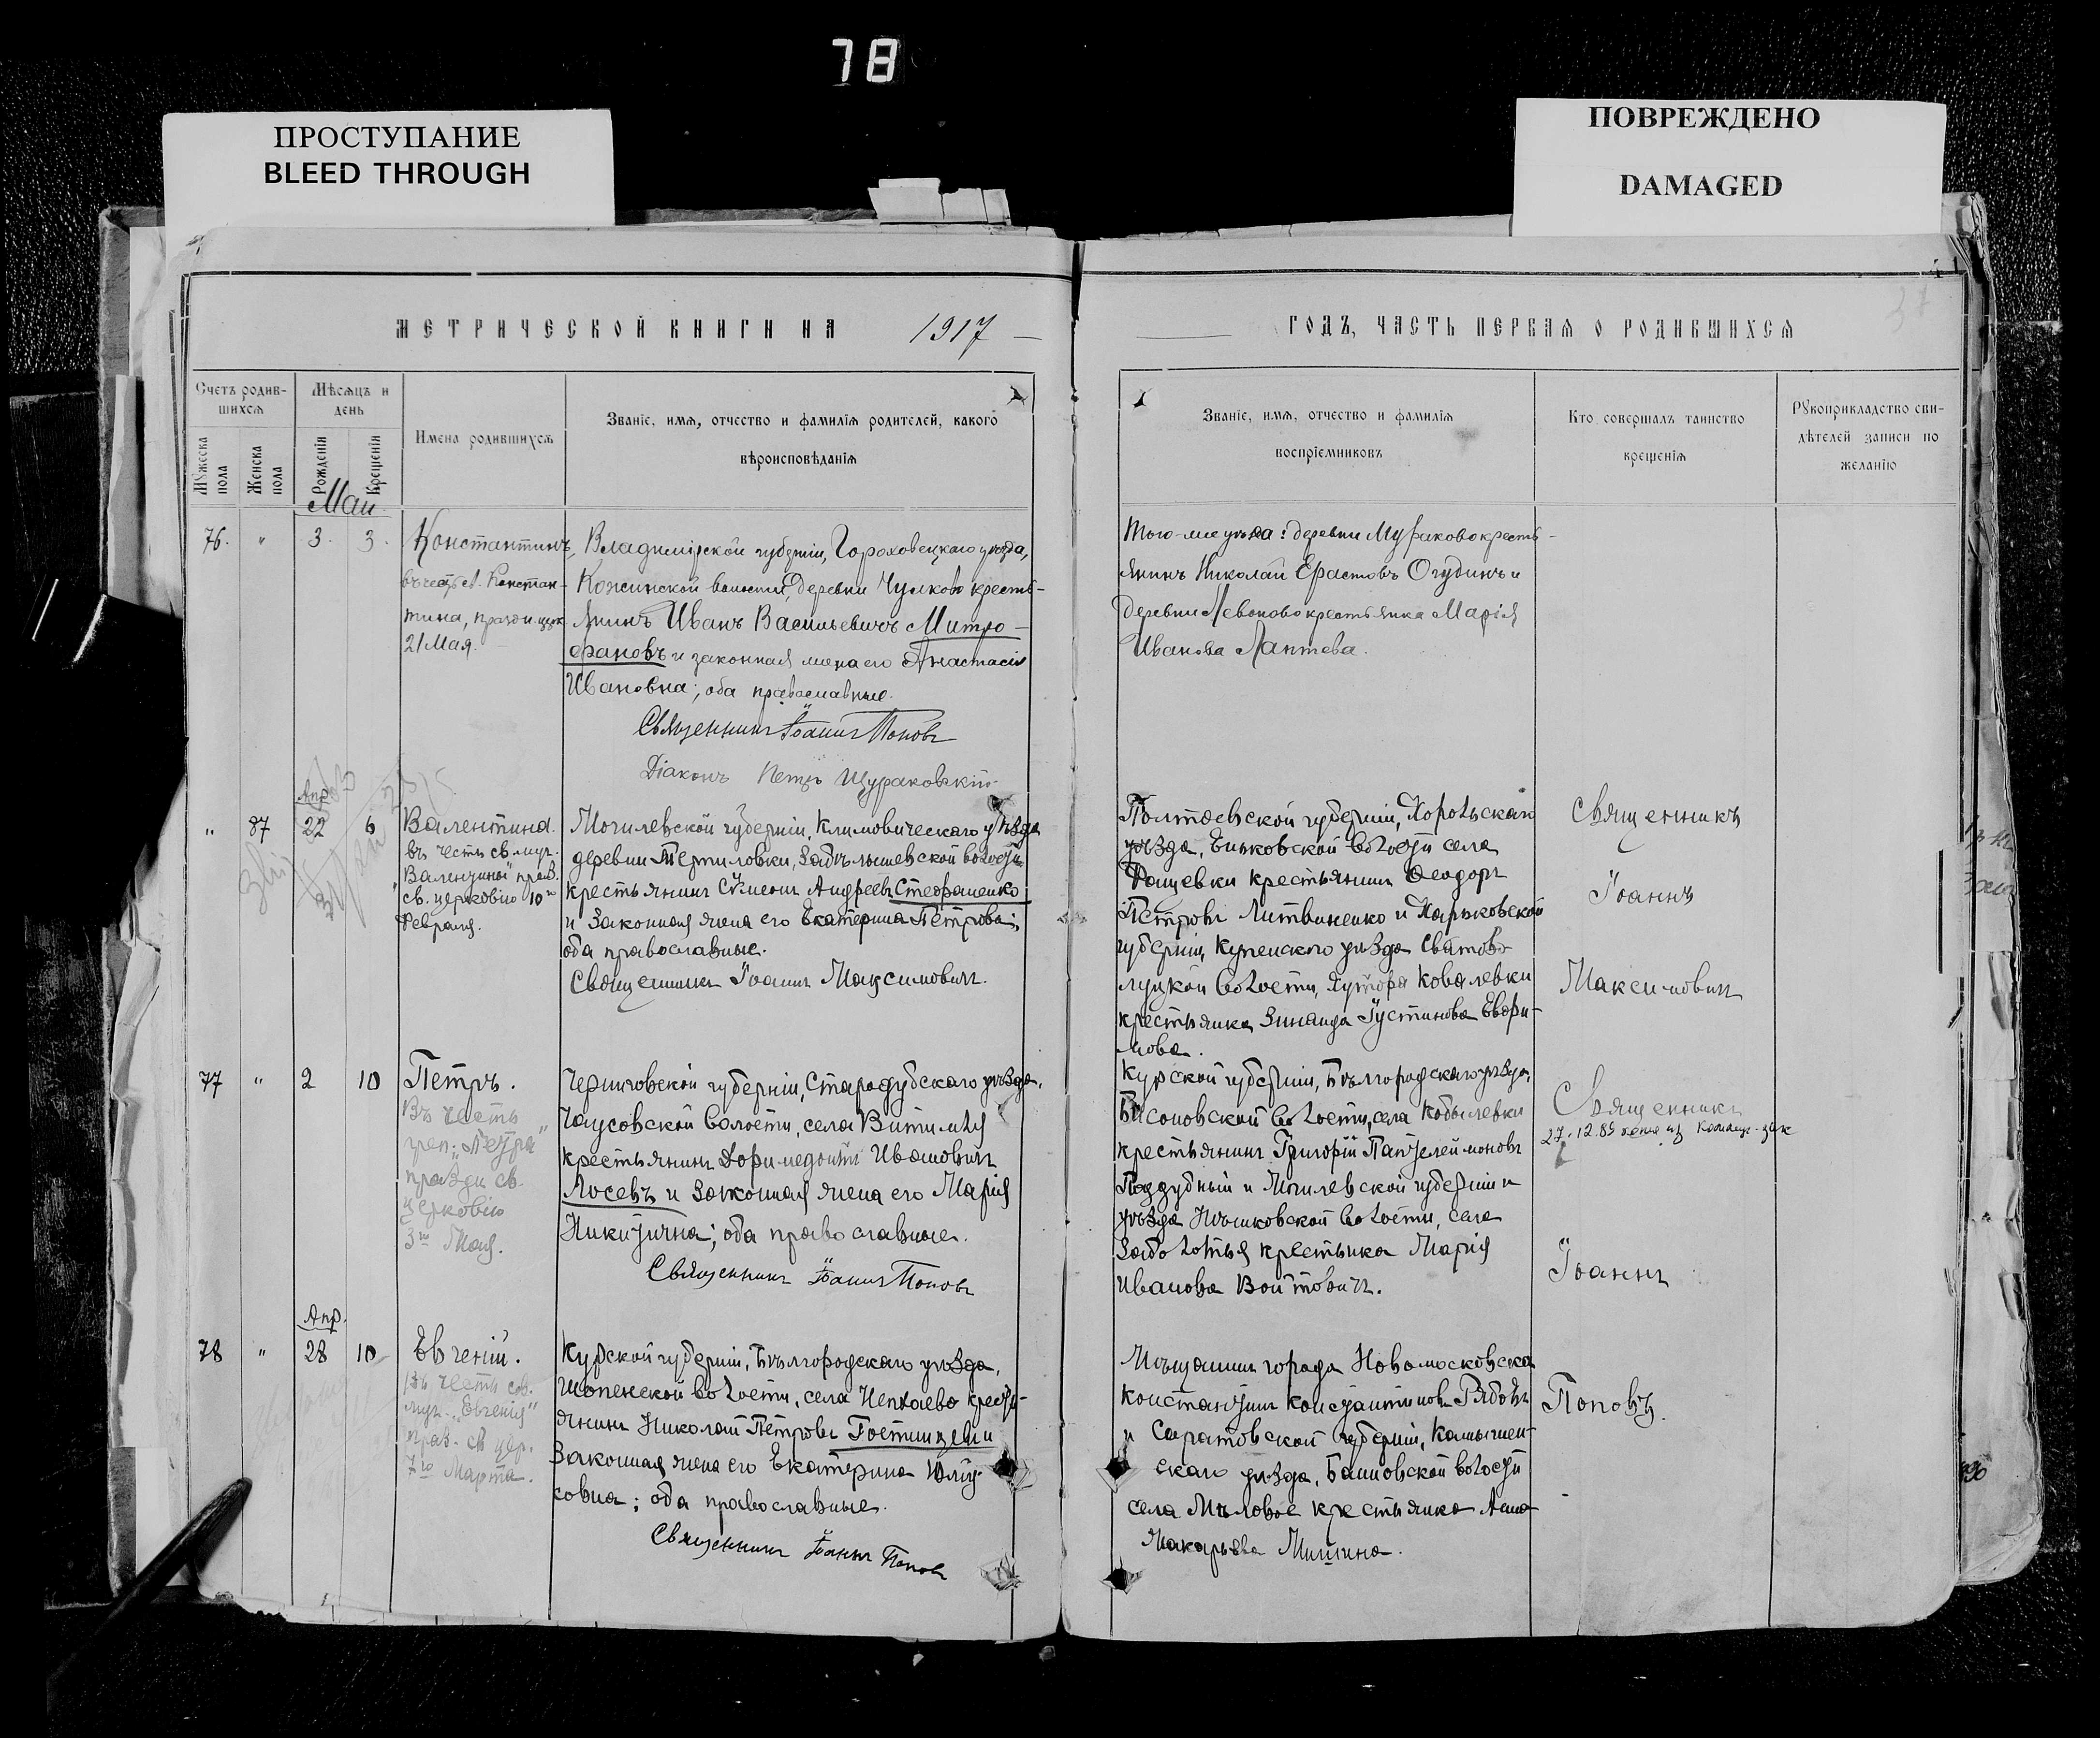 78
ПРОСТУПАНИЕ
BLEED THROUGH
ПОВРЕЖДЕНО
DAMAGED
МЕТРИЧЕСКОЙ КНИГИ НА 1917
Счетъ родив-
шихся
Мѣсяцъ и
день
Мужеска
пола
Женска
пола
Рожденія
Крещенія
Имена родившихся
Званіе, имя, отчество и фамилія родителей, какого
вѣроисповѣданія
Май
76. " 3. 3.
Константинъ,
въ честь св. Констан-
тина, праздн. церк.
21 Мая.
Владимірской губерніи, Гороховецкаго уѣзда,
Кожинской волости, деревни Чулково кресть-
янинъ Иванъ Васильевичъ Митро-
фановъ и законная жена его Анастасія
Ивановна; оба православные.
Священникъ Іоаннъ Поповъ
Діаконъ Петръ Щураковскій
Апр.
" 87 22 6
Валентина.
въ честь св. муч.
Валентины" празд.
св. церковію 10го
Февраля.
Могилевской губерніи, Климовическаго уѣзда
деревни
волости
крестьянинъ Сѵмеонъ Андреевъ Стефаненко
и законная жена его Екатерина Петрова;
оба православные.
Священникъ Іоаннъ Максимовичъ.
77 " 2 10
Петръ.
Въ честь
преп. „Петра"
праздн св.
церковію
3го Мая.
Черниговской губерніи, Стародубскаго уѣзда,
волости, села
крестьянинъ Доримедонтъ Ивановичъ
Лосевъ и законная жена его Марія
Никитична; оба православные.
Священникъ Іоаннъ Поповъ
Апр.
78 " 28 10
Евгеній.
въ честь
муч. „Евгенія"
праз. св. цер.
7го Марта.
Курской губерніи, Бѣлгородскаго уѣзда,
Шопенской волости, села Непхаево кресть-
янинъ Николай Петровъ
законная жена его Екатерина
совна; оба православные.
Священникъ Іоаннъ Поповъ
ГОДЪ, ЧАСТЬ ПЕРВАЯ О РОДИВШИХСЯ
Званіе, имя, отчество и фамилія
воспріемниковъ
Кто совершалъ таинство
крещенія
Рукоприкладство сви-
дѣтелей записи по
желанію
Того-же уѣзда: деревни Мураково кресть-
янинъ Николай Ерастовъ Огудинъ и
деревни Левоново крестьянка Марія
Иванова Лаптева.
Полтавской губерніи, Хорольскаго
уѣзда, волости села
крестьянинъ Ѳеодоръ
Петровъ Литвиненко и Харьковской
губерніи, Купенского уѣзда Сватово-
луцкой волости, хутора Ковалевки
крестьянка Зинаида Іустинова Ефи-
мова.
Священникъ
Іоаннъ
Максимовичъ
Курской губерніи, Бѣлгородскаго уѣзда,
волости, села Кобылевки
крестьянинъ Григорій Пантелеймоновъ
Поддубный и Могилевской губерніи и
уѣзда волости, села
Заболотья крестьянка Марія
Иванова Войтовичъ.
Священникъ
27.12.89
Іоаннъ
Мѣщанинъ города Новомосковска
Константинъ Константиновъ Рябовъ
и Саратовской губерніи, Камышин-
скаго уѣзда, Банновской волости
села Мѣловое крестьянка Анна
Макарьева Мишина.
Поповъ.